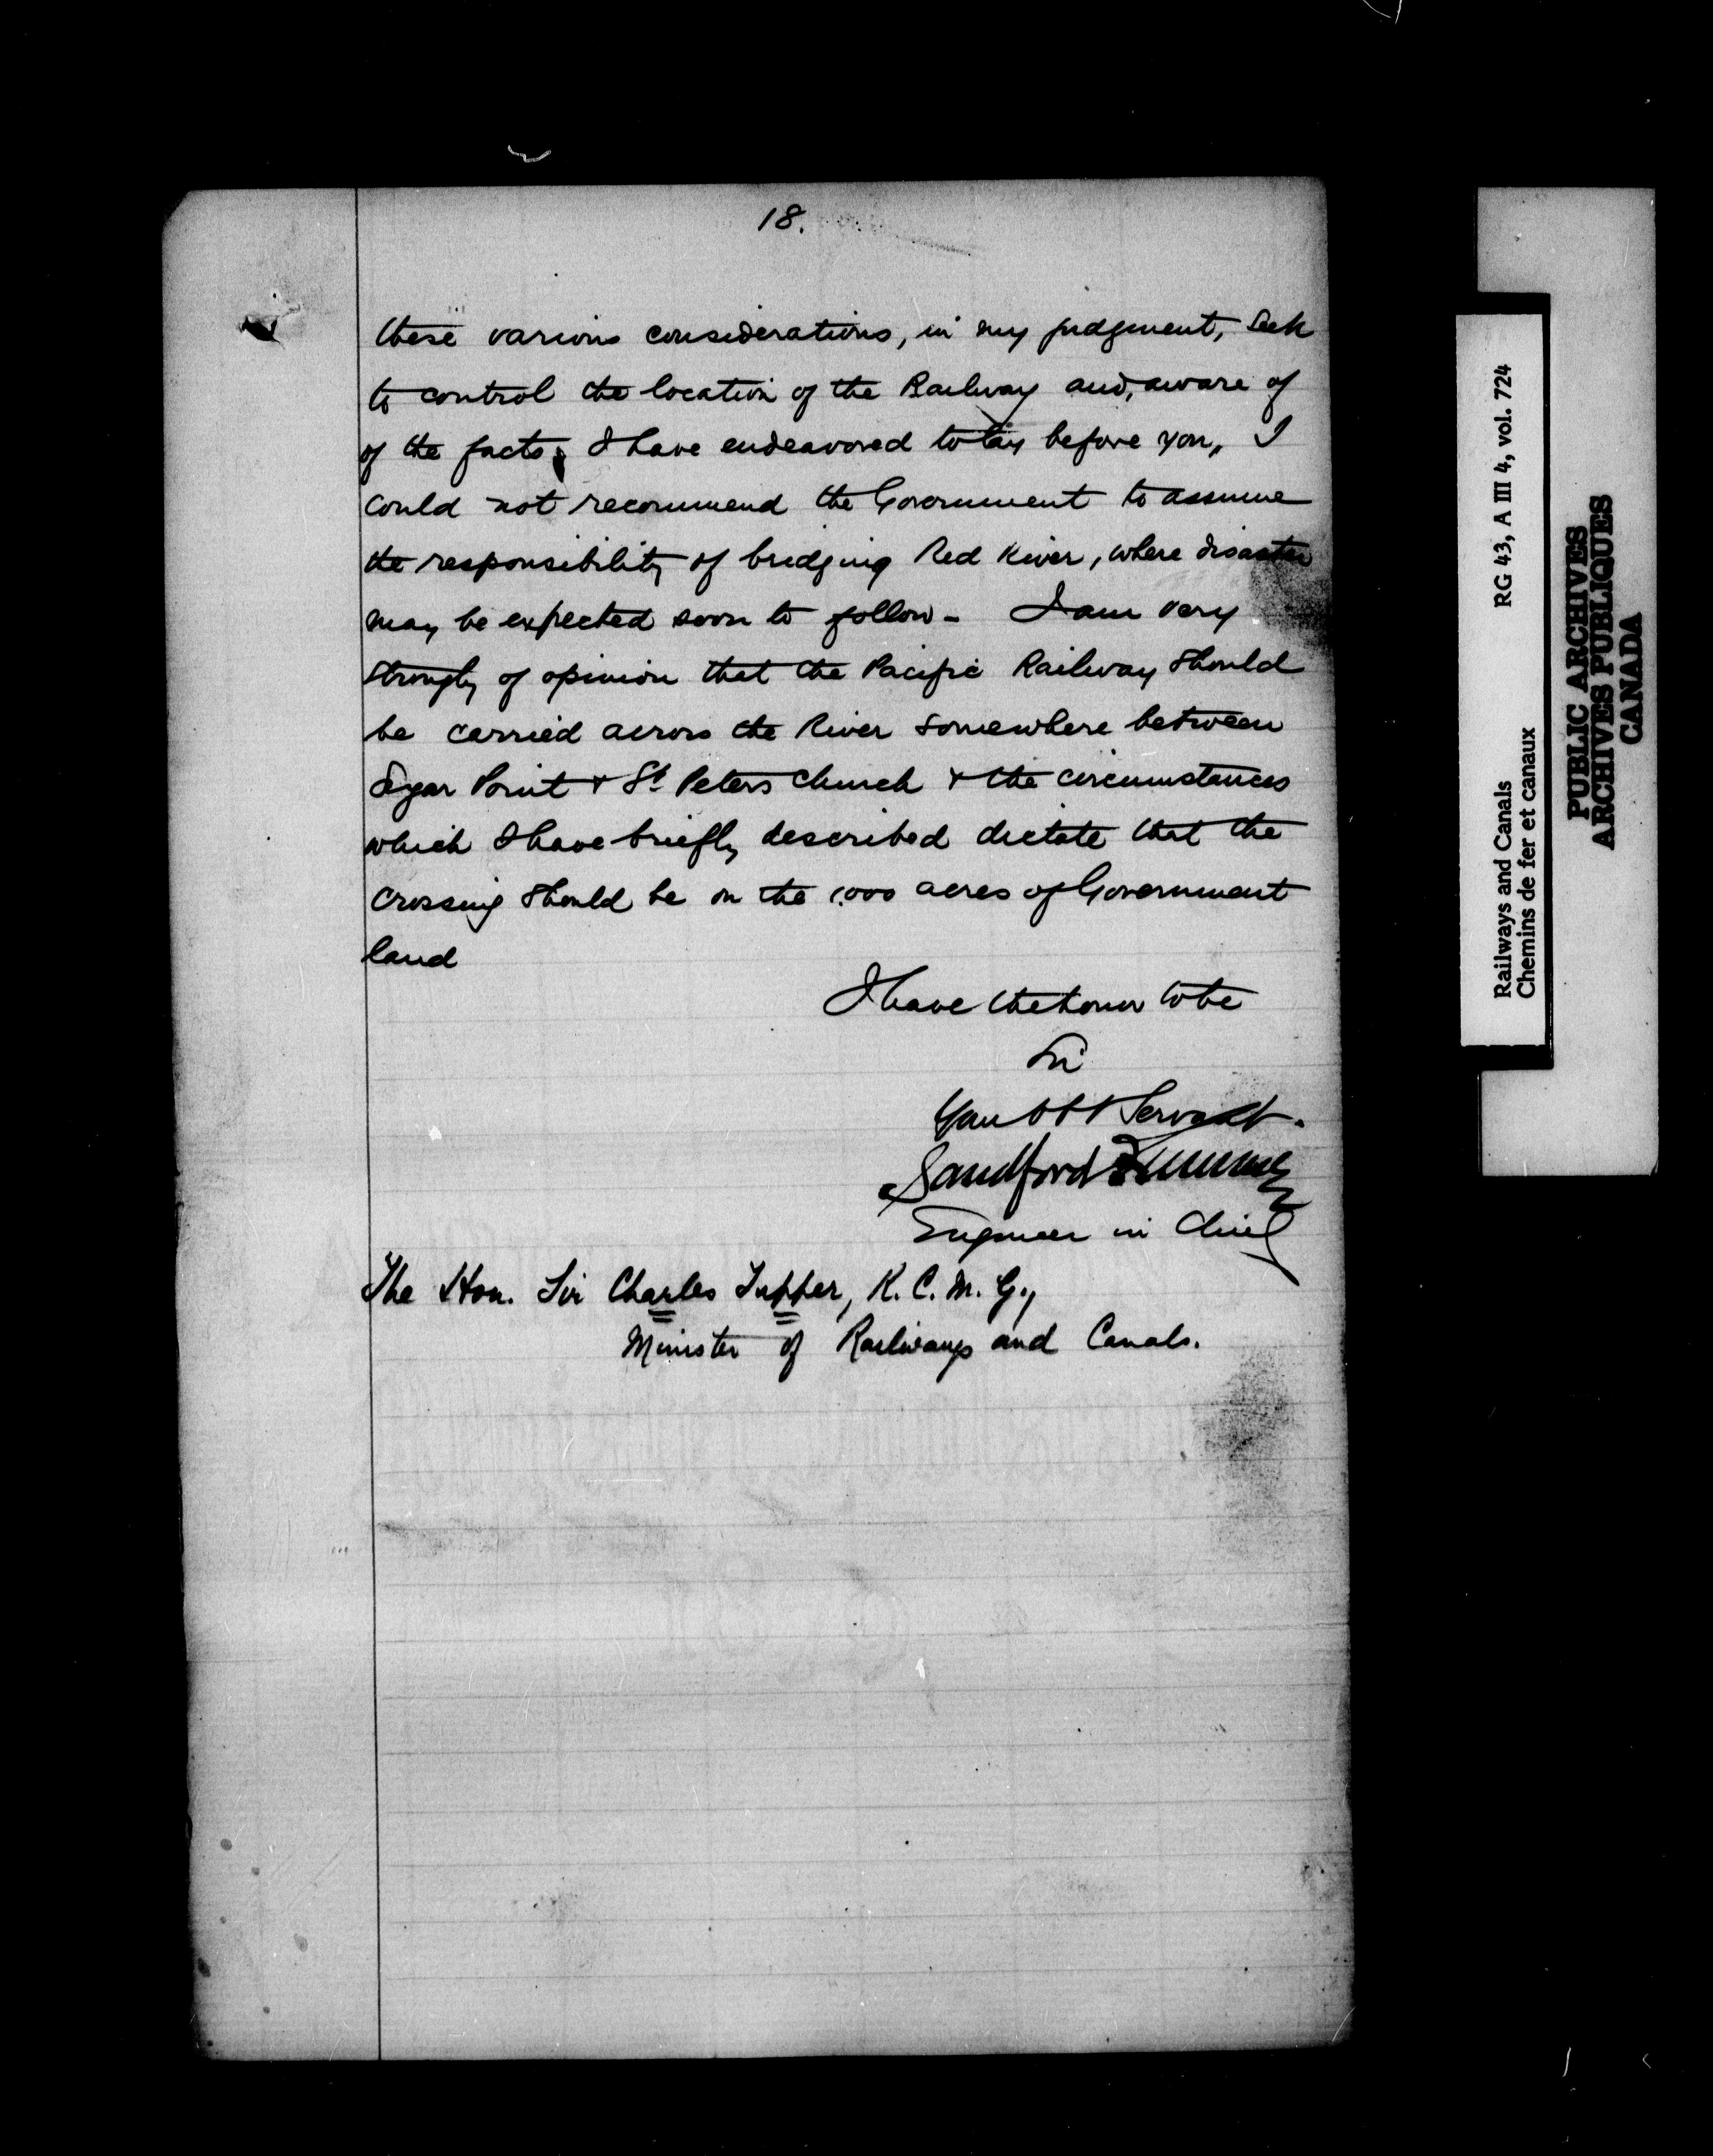 18.
these various considerations, in my judgment, seek
to control the location of the Railway and, aware of
of the facts, I have endeavored to lay before you, I
could not recommend the Government to assume
the responsibility of bridging Red River, where disaster
may be expected soon to follow - I am very
strongly of opinion that the Pacific Railway should
be carried across the River somewhere between
Sugar Point & St Peters Church & the circumstances
which I have briefly described dictate that the
crossing should be on the 1,000 acres of Government
land
I have the honor to be
Sir
Your Obt Servant.
Sandford Fleming
Engineer in Chief
The Hon. Sir Charles Tupper, K.C.M.G.,
Minister of Railways and Canals.
Railways and Canals RG 43, A III 4, vol. 724
Chemins de fer et canaux
PUBLIC ARCHIVES
ARCHIVES PUBLIQUES
CANADA